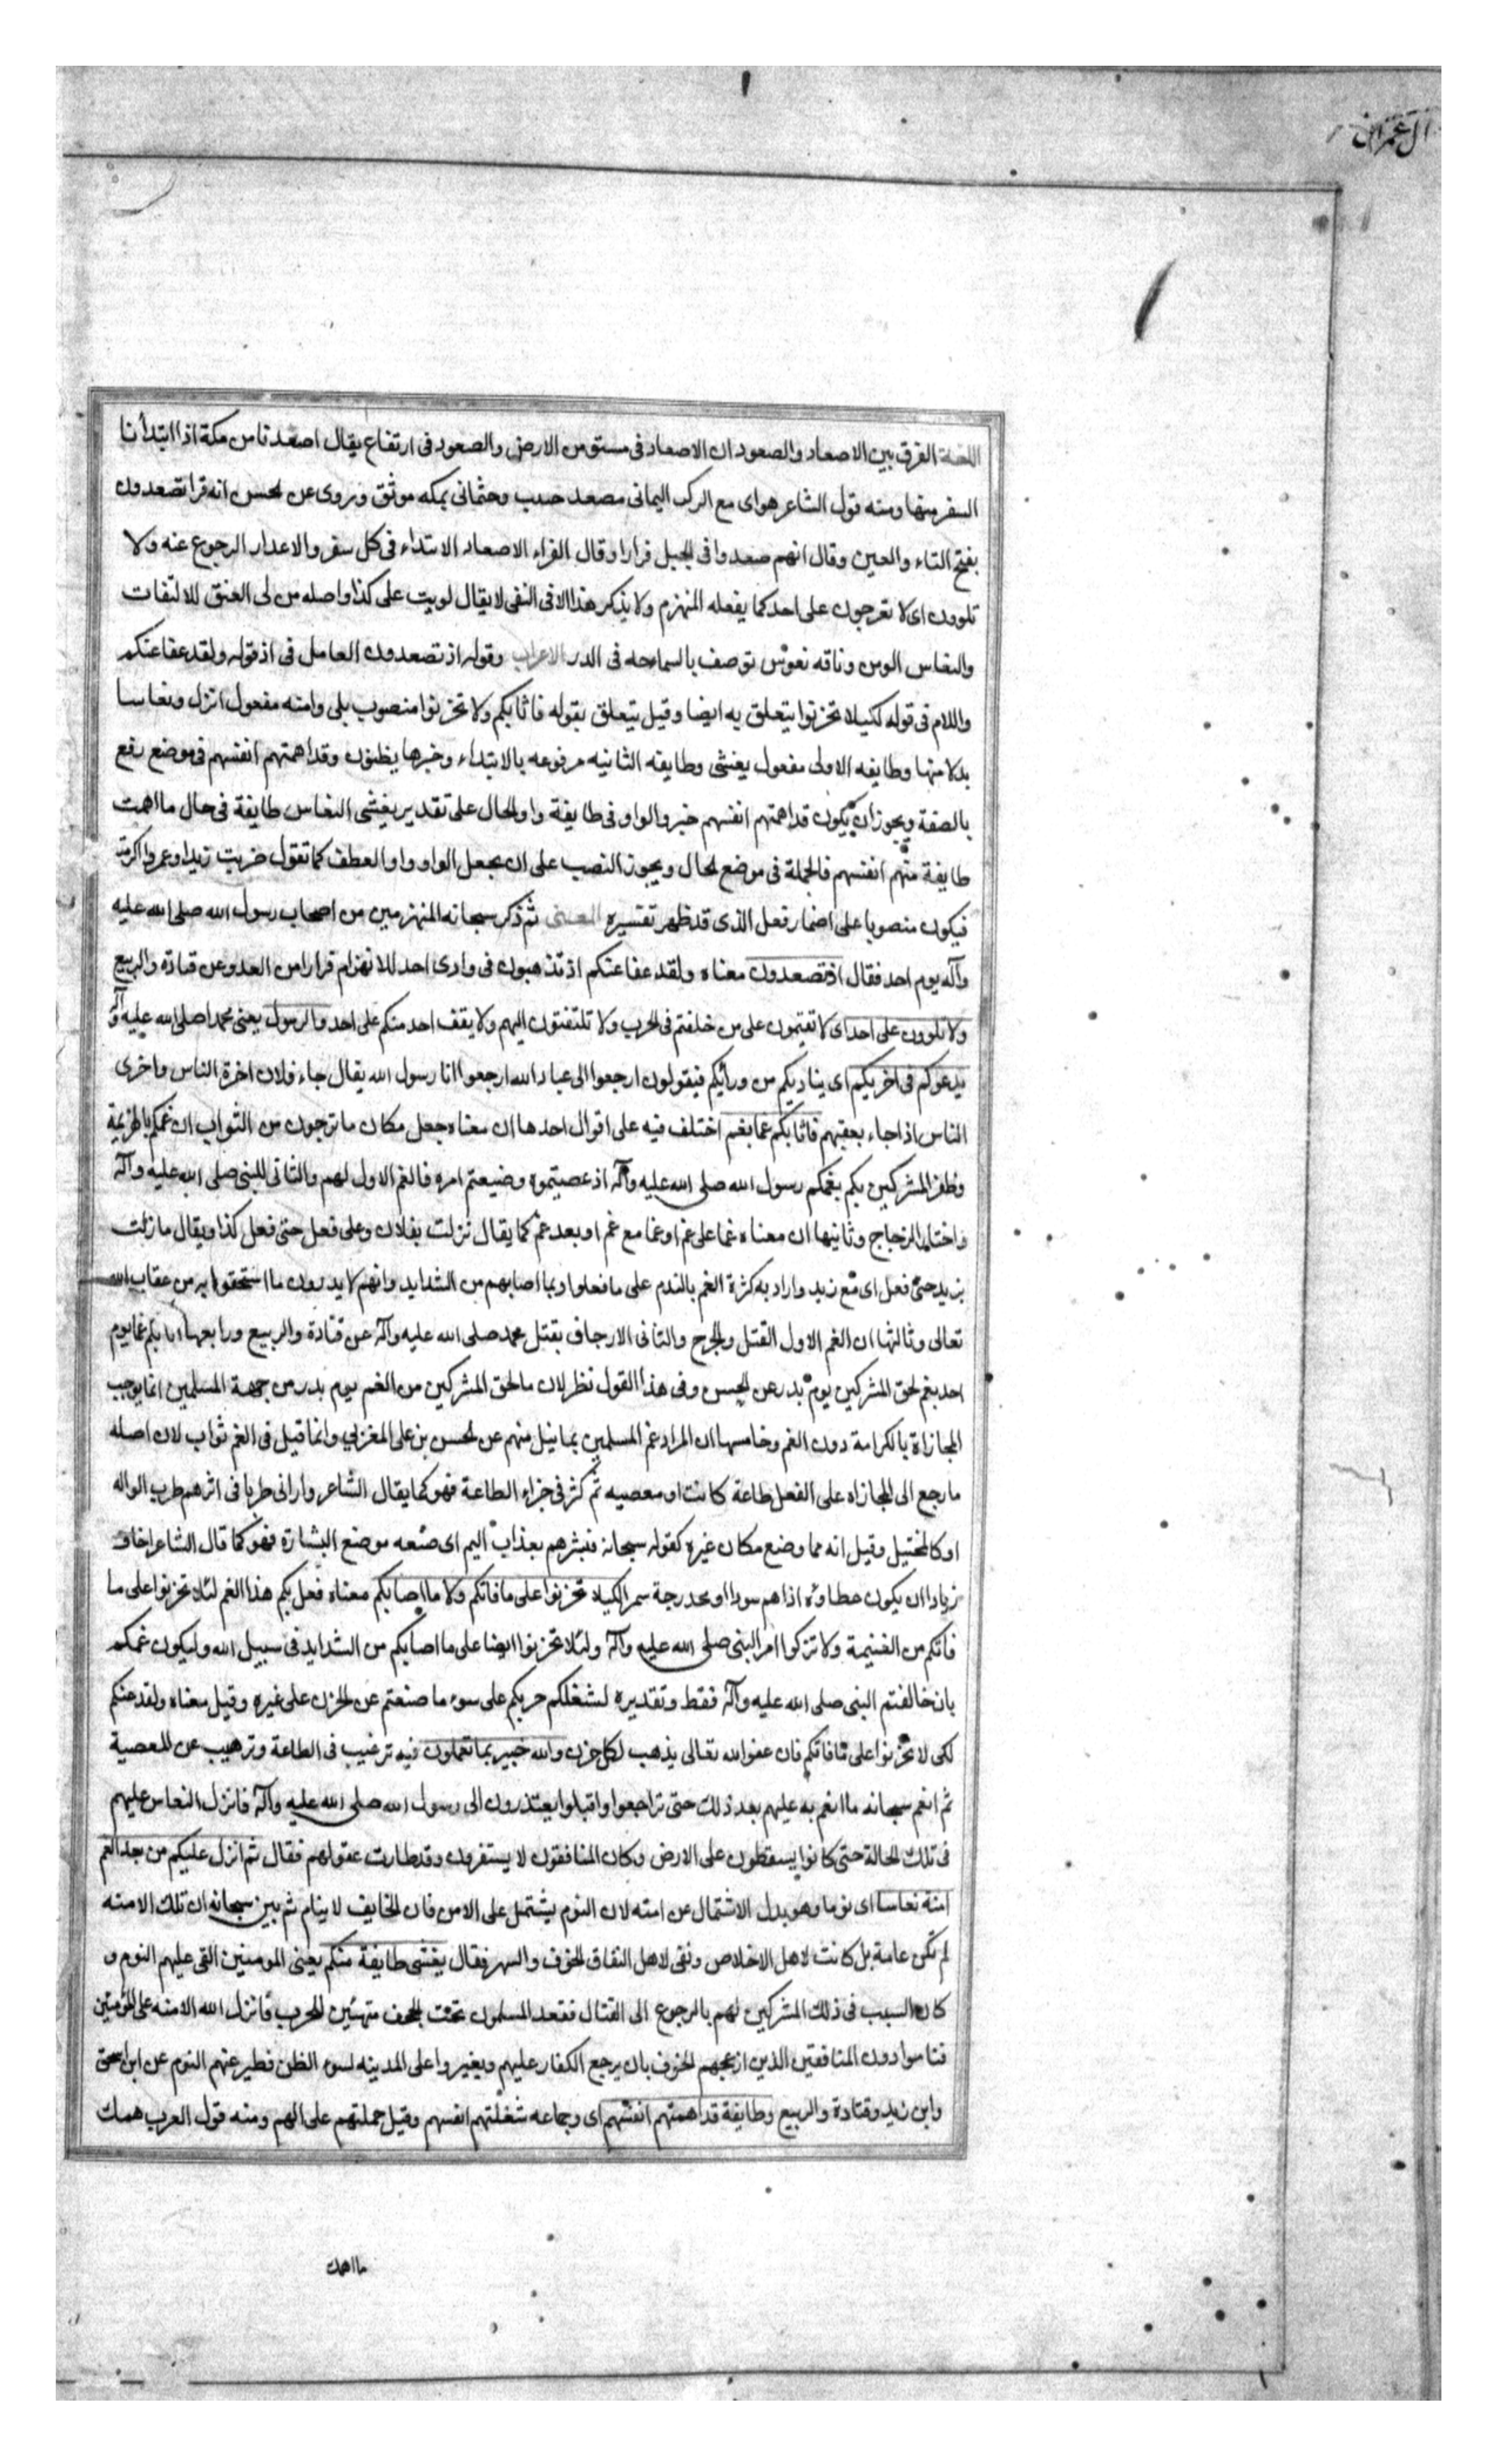 ال عمران
اللغة الفرق بين الاصعاد والصعود ان الاصعاد فى مستو من الارض والصعود فى ارتفاع يقال اصعدنا من مكة اذا ابتدأنا
السفر منها ومنه قول الشاعر هواى مع الركب اليمانى مصعد جنيب وجثمانى بمكه موثق وروى عن الحسن انه قرا تصعدون
بفتح التاء والعين وقال انهم صعدوا فى الجبل فرارا وقال الفراء الاصعاد الابتداء فى كل سفر والاعدار الرجوع عنه ولا
تلوون اى لا تعرجون على احد كما يفعله المنهزم ولا يذكر هذا الا فى النفى لا يقال لويت على كذا واصله من لى العنق للالتفات
والنعاس الوسن وناقه نعوس توصف بالسماحه فى الدر الاعراب وقوله اذ تصعدون العامل فى اذ قوله ولقد عفا عنكم
واللام فى قوله لكيلا تحزنوا يتعلق به ايضا وقيل يتعلق بقوله فاثابكم ولا تحزنوا منصوب بلى وامنه مفعول انزل ونعاسا
بدلا منها وطايفه الاولى مفعول يغشى وطايفه الثانيه مرفوعه بالابتداء وخبرها يظنون وقد اهمتهم انفسهم فى موضع رفع
بالصفة ويجوز ان يكون قد اهمتهم انفسهم خبر والواو فى طايفة واو الحال على تقدير يغشى النعاس طايفة فى حال ما اهمت
طايفة منهم انفسهم فالجملة فى موضع الحال ويجوز النصب على ان يجعل الواو واو العطف كما تقول ضربت زيدا وعمروا اكرمته
فيكون منصوبا على اضمار فعل الذى قد ظهر تفسيره المعنى ثم ذكر سبحانه المنهزمين من اصحاب رسول الله صلى الله عليه
وآله يوم احد فقال اذ تصعدون معناه ولقد عفا عنكم اذ تذهبون فى وادى احد للانهزام فرارا من العدو عن قتادة والربيع
ولا تلوون على احد اى لا تقيمون على من خلفتم فى الحرب ولا تلتفتون اليهم ولا يقف احد منكم على احد والرسول يعنى محمدا صلى الله عليه وآله
يدعوكم فى اخريكم اى يناديكم من ورائكم فيقولون ارجعوا الى عباد الله ارجعوا انا رسول الله يقال جاء فلان اخرة الناس واخرى
الناس اذا جاء بعقبهم فاثابكم غما بغم اختلف فيه على اقوال احدها ان معناه جعل مكان ما ترجون من الثواب ان غمكم بالهزيمة
وظفر المشركين بكم بغمكم رسول الله صلى الله عليه وآله اذ عصيتموه وضيعتم امره فالغم الاول لهم والثانى للنبى صلى الله عليه وآله
واختاره الزجاج وثانيها ان معناه غما على غم او غما مع غم او بعد غم كما يقال نزلت بفلان وعلى فعل حتى فعل كذا ويقال ما زلت
بزيد حتى فعل اى مع زيد واراد به كثرة الغم بالندم على ما فعلوا وبما اصابهم من الشدايد وانهم لا يدرون ما استحقوا به من عقاب الله
تعالى وثالثها ان الغم الاول القتل والجرح والثانى الارجاف بقتل محمد صلى الله عليه وآله عن قتادة والربيع ورابعها اثابكم غما يوم
احد بغم لحق المشركين يوم بدر عن الحسن وفى هذا القول نظر لان ما لحق المشركين من الغم يوم بدر من جهة المسلمين انما يوجب
المجازاة بالكرامة دون الغم وخامسها ان المراد غم المسلمين بما نيل منهم عن الحسن بن على المغربى وانما قيل فى الغم ثواب لان اصله
ما رجع الى المجازاه على الفعل طاعة كانت او معصيه ثم كثر فى جزاء الطاعة فهو كما يقال الشاعر وارانى طربا فى اثرهم طرب الواله
او كالمختبل وقيل انه مما وضع مكان غيره كقوله سبحانه فبشرهم بعذاب اليم اى ضعه موضع البشارة فهو كما قال الشاعر اخاف
زيادا ان يكون عطاوه اذاهم سودا او محدرجة سمرا لكيلا تحزنوا على ما فاتكم ولا ما اصابكم معناه فعل بكم هذا الغم لئلا تحزنوا على ما
فاتكم من الغنيمة ولا تتركوا امر النبى صلى الله عليه وآله ولئلا تحزنوا ايضا على ما اصابكم من الشدايد فى سبيل الله وليكون غمكم
بان خالفتم النبى صلى الله عليه وآله فقط وتقديره لشغلكم حزبكم على سوء ما صنعتم عن الحزن على غيره وقيل معناه ولقد عنكم
لكى لا تحزنوا على ما فاتكم فان عفو الله تعالى يذهب لكل حزن والله خبير بما تعملون فيه ترغيب فى الطاعة وترهيب عن المعصية
ثم انعم سبحانه ما انعم به عليهم بعد ذلك حتى تراجعوا واقبلوا يعتذرون الى رسول الله صلى الله عليه وآله فانزل النعاس عليهم
فى تلك الحالة حتى كانوا يسقطون على الارض وكان المنافقون لا يستقرون وقد طارت عقولهم فقال ثم انزل عليكم من بعد الغم
امنة نعاسا اى نوما وهو بدل الاشتمال عن امنه لان النوم يشتمل على الامن فان الخايف لا ينام ثم بين سبحانه ان تلك الامنه
لم تكن عامة بل كانت لاهل الاخلاص ونفى لاهل النفاق الخوف والسهر فقال يغشى طايفة منكم يعنى المومنين القى عليهم النوم و
كان السبب فى ذلك المشركين لهم بالرجوع الى القتال فقعد المسلمون تحت الجحف متهيئين للحرب فانزل الله الامنه على المؤمنين
فناموا دون المنافقين الذين ازعجهم الخوف بان يرجع الكفار عليهم ويغيروا على المدينه لسوء الظن فطير عنهم النوم عن ابن اسحق
وابن زيد وقتادة والربيع وطايفة قد اهمتهم انفسهم اى وجماعه شغلتهم انفسهم وقيل حملتهم على الهم ومنه قول العرب همك
ما اهمك